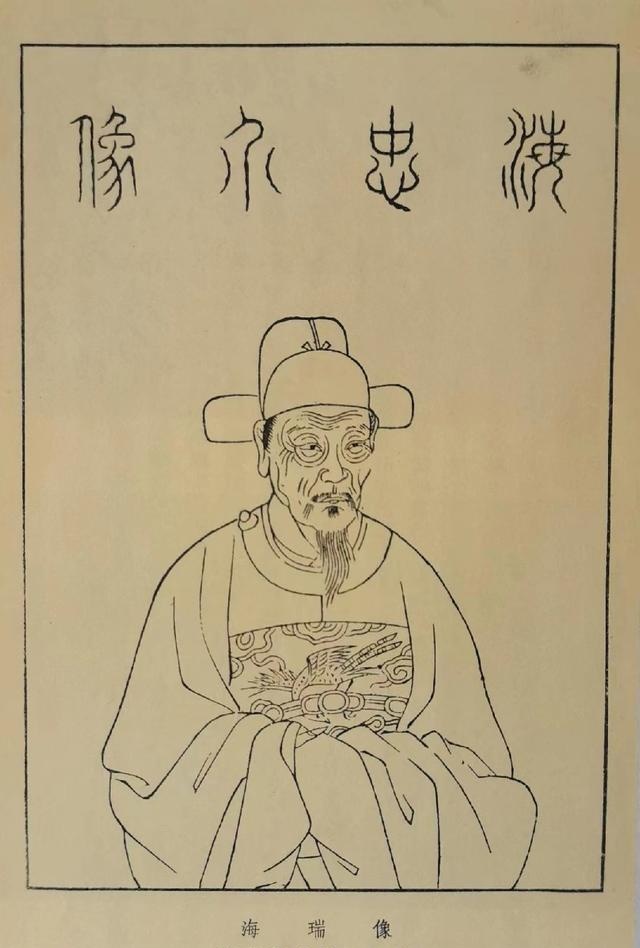 海忠介像
海瑞像